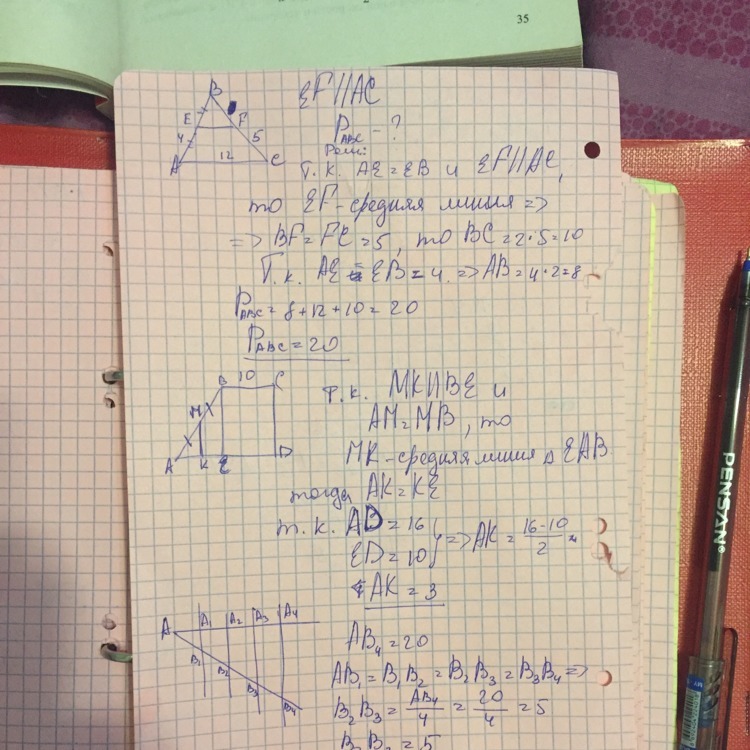 35
B
EF||AC
E F
4 5
A 12 C
P ABC - ?
Реш:
Т.к. AE = EB и EF||AC,
то EF - средняя линия =>
=> BF = FC = 5, то BC = 2·5 = 10
Т.к. AE = EB = 4 => AB = 4·2 = 8
P ABC = 8 + 12 + 10 = 20
P ABC = 20
B 10 C
M
A K E D
т.к. MK||BE и
AM = MB, то
MK - средняя линия Δ EAB
тогда AK = KE
т.к. AD = 16
ED = 10 } => AK = (16-10)/2 =
AK = 3
A A₁ A₂ A₃ A₄
B₁ B₂ B₃ B₄
AB₄ = 20
AB₁ = B₁B₂ = B₂B₃ = B₃B₄ =>
B₂B₃ = AB₄/4 = 20/4 = 5
B₂B₃ = 5
PENSAN